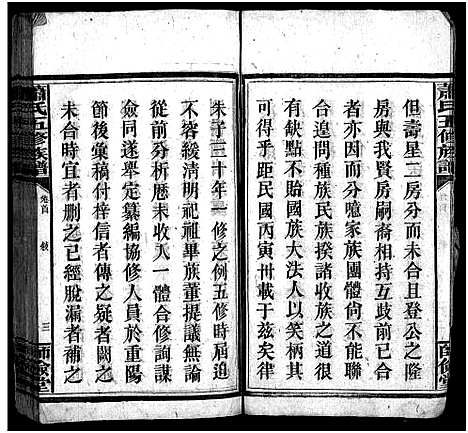 但壽星二房分而未合且登公之隆
房與我賢房嗣裔相互歧前已舉行
者亦分而分噫家族團體尙不能聯
合遑種族民族揆諸收族之道很
有缺點不貽國族大法人以笑柄其
可得乎距民國丙寅卅載于茲矣律
朱子三十年一修之例五修時屆迫
不容緩清明祀祖畢族董提議無分
從前分析歷未收入一體合修詢謀
僉同遂舉定纂編協修人員於重陽
節後彙稿付梓信者傳之疑者闕之
未合時宜者刪之已經脫漏者補之
蕭氏五修族譜
卷首
敘
三
師儉堂
蕭氏五修族譜
師儉堂